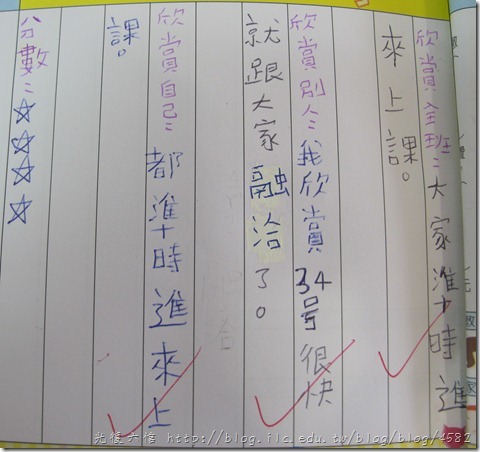 欣賞全班：大家準時進
來上課。
欣賞別人：我欣賞34号很快
就跟大家融洽了。
欣賞自己：都準時進來上
課。
分數：☆☆☆☆
光復六信 http://blog.ilc.edu.tw/blog/blog/4582